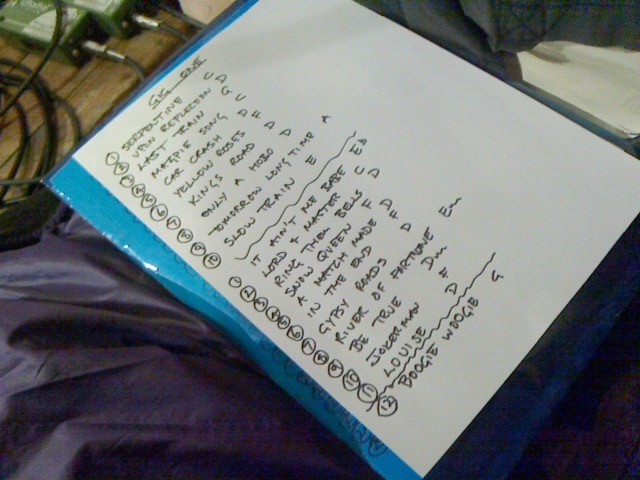 GIG ONE
① SERPENTINE C
② UPON REFLECTION D
③ LAST TRAIN G
④ MAGPIE SONG C
⑤ CAR CRASH D
⑥ YELLOW ROSES F
⑦ KINGS ROAD D
⑧ ONLY A HOBO D
⑨ TOMORROW LONG TIME A
⑩ SLOW TRAIN E
① IT AIN'T ME BABE
② LORD + MASTER C
③ RING THEM BELLS D
④ SNOW QUEEN F
⑤ A MATCH MADE D
⑥ IN THE END F
⑦ GYPSY ROADS D
⑧ RIVER OF FORTUNE Em
⑨ BE TRUE Dm
⑩ JOKERMAN F
⑪ LOUISE D
⑫ BOOGIE WOOGIE G